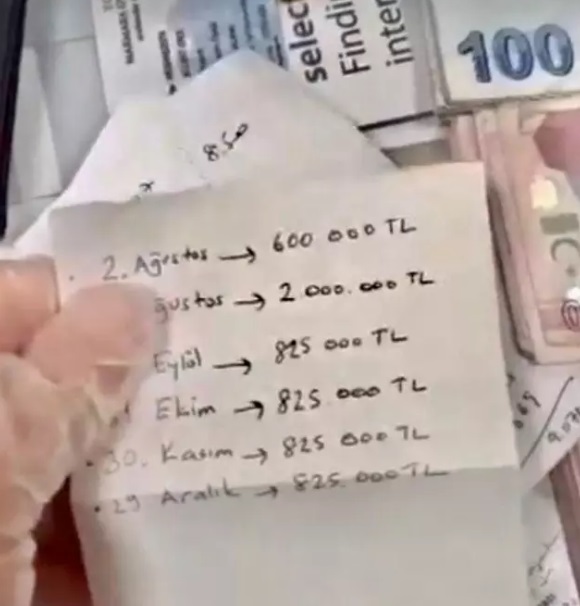 select
Findi
inter
100
850
2. Ağustos → 600 000 TL
ğustos → 2.000.000 TL
Eylül → 825 000 TL
Ekim → 825.000 TL
30. Kasım → 825 000 TL
29 Aralık → 825.000 TL